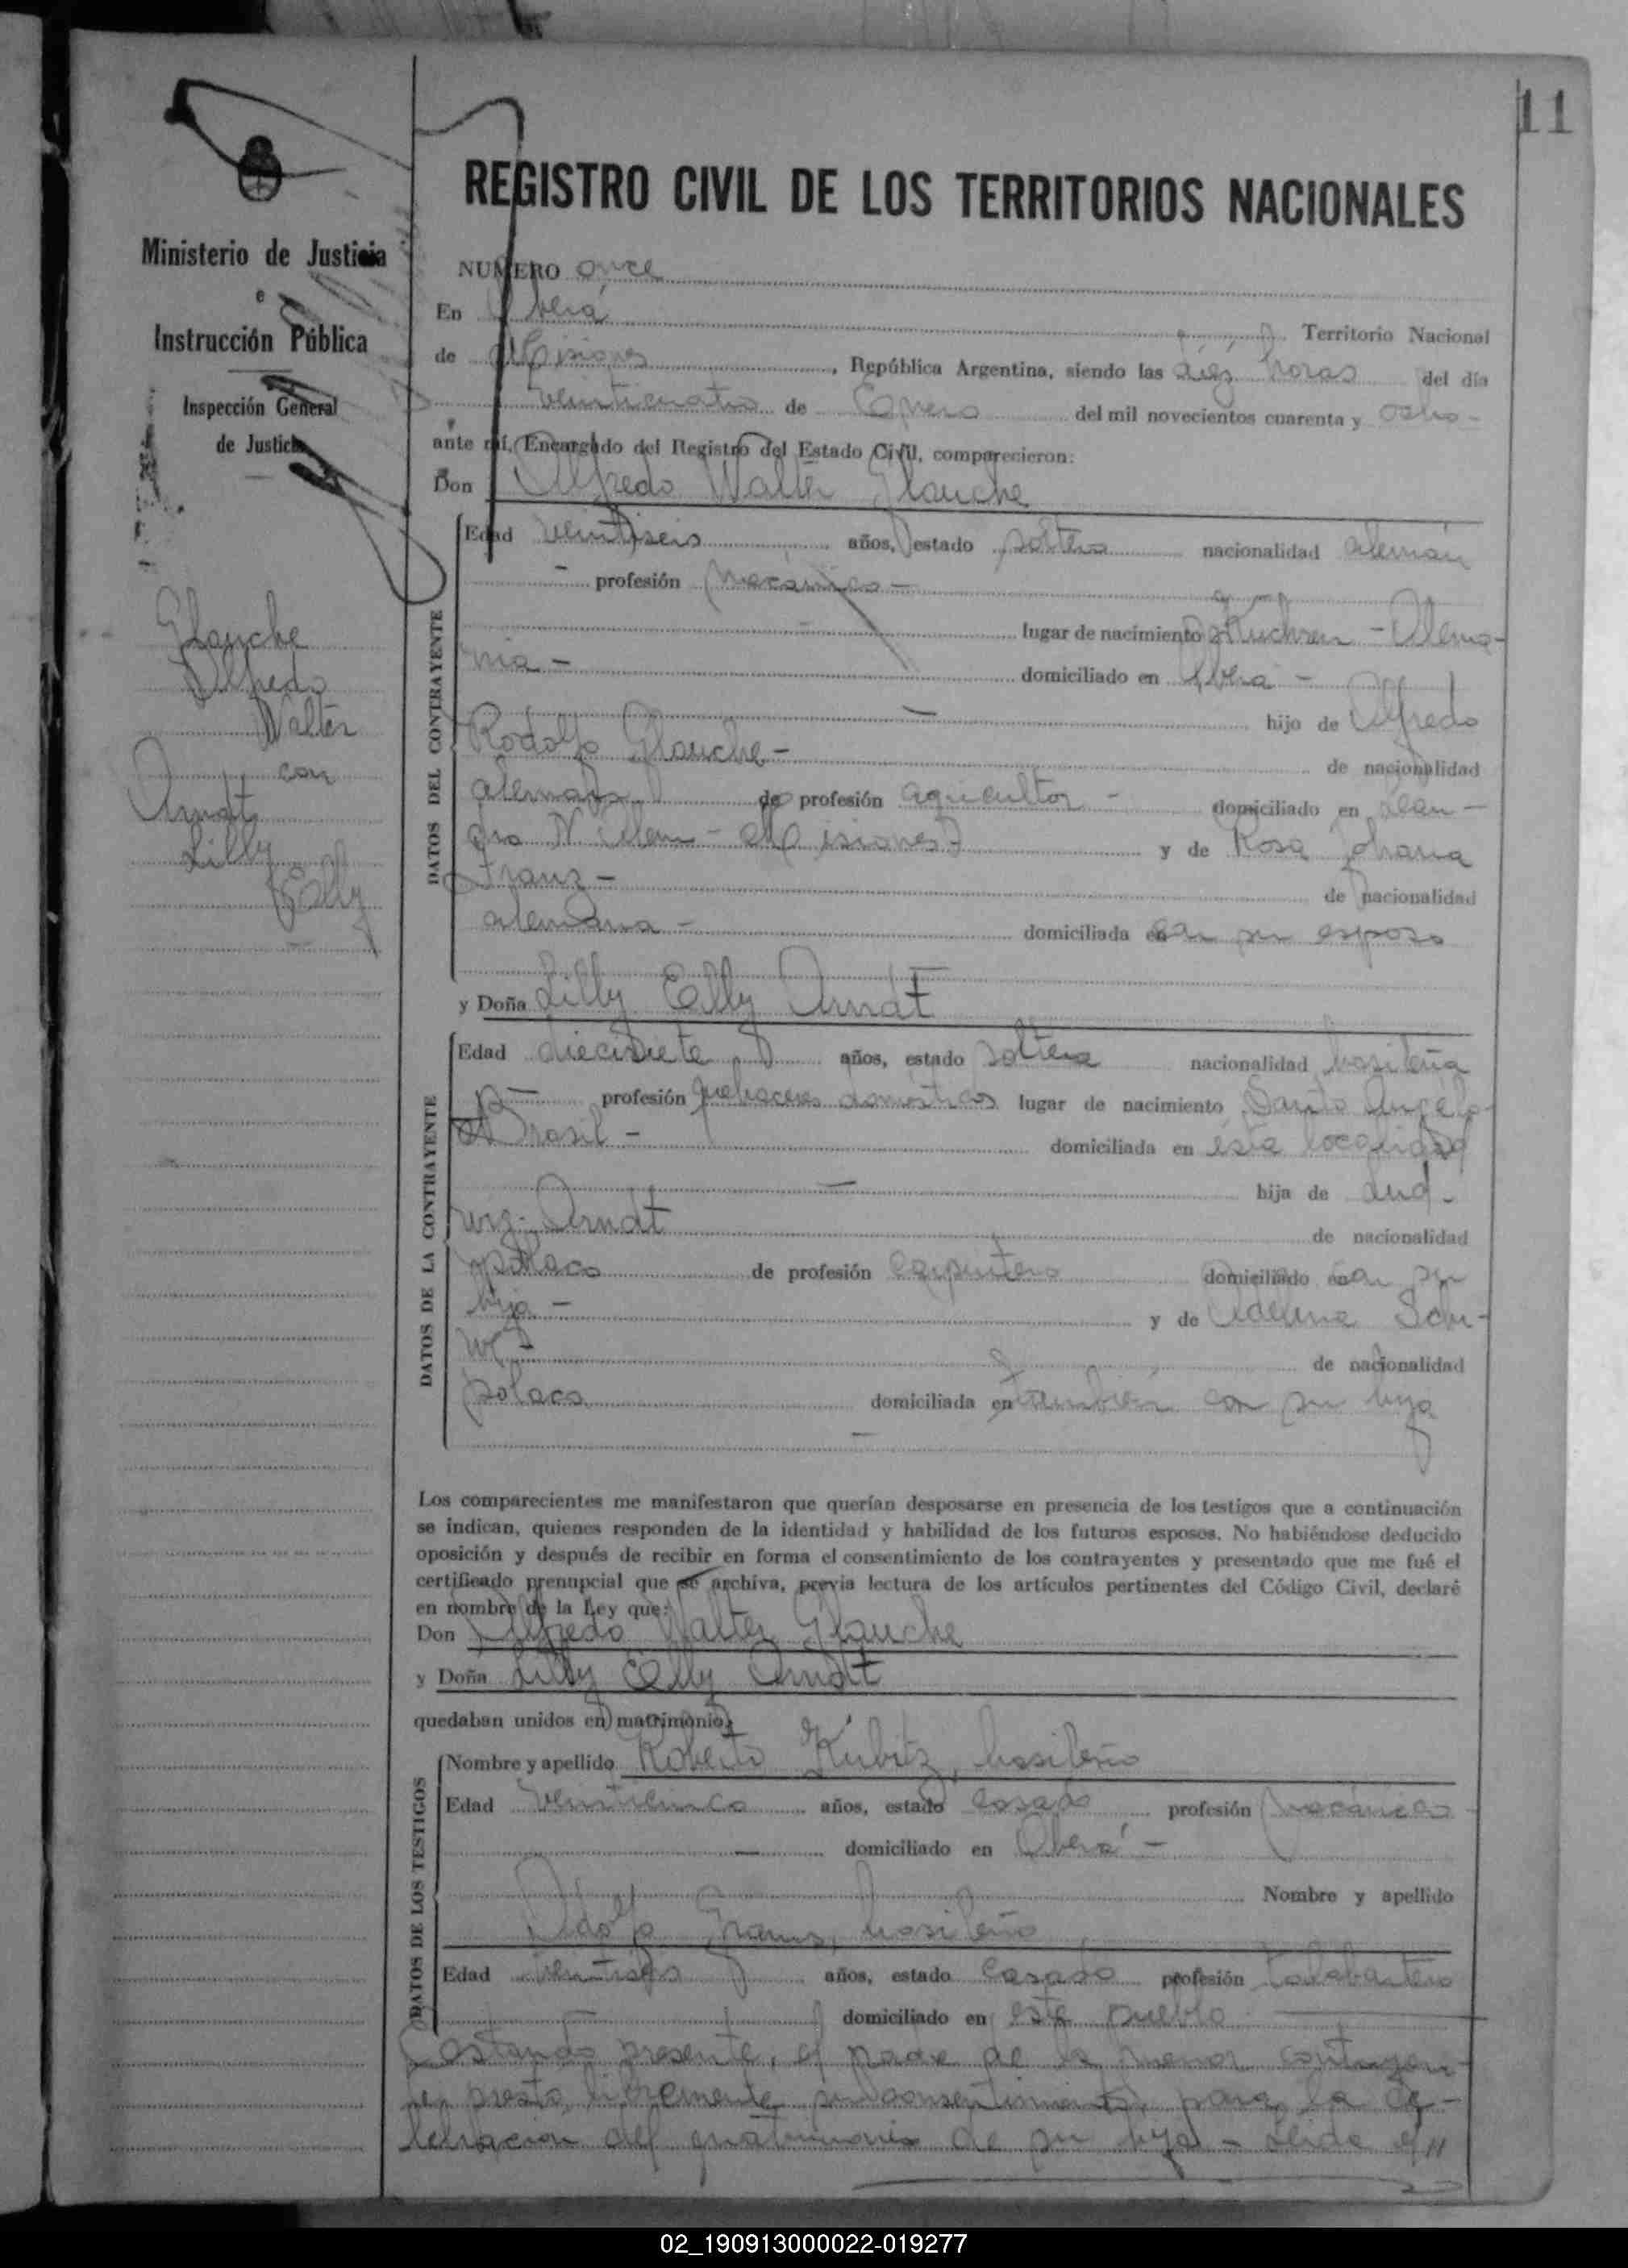 11
REGISTRO CIVIL DE LOS TERRITORIOS NACIONALES
Ministerio de Justicia
e
Instrucción Pública
Inspección General
de Justicia
Glauche
Alfredo
Walter
con
Arndt
Lilly
Elly
NUMERO once
En Oberá Territorio Nacional
de Misiones, República Argentina, siendo las diez horas del día
veinticuatro de Enero del mil novecientos cuarenta y ocho-
ante mí, Encargado del Registro del Estado Civil, comparecieron:
Don Alfredo Walter Glauche
DATOS DEL CONTRAYENTE
Edad veintiseis años, estado soltero nacionalidad alemán
- profesión mecánico -
lugar de nacimiento - Alema-
nia - domiciliado en Oberá -
hijo de Alfredo
Rodolfo Glauche - de nacionalidad
alemana de profesión agricultor - domiciliado en Lean-
dro N. Alem - Misiones y de Rosa Johana
Franz - de nacionalidad
alemana - domiciliada en con su esposo
y Doña Lilly Elly Arndt
DATOS DE LA CONTRAYENTE
Edad diecisiete años, estado soltera nacionalidad brasileña
profesión quehaceres domésticos lugar de nacimiento Santo Angelo-
Brasil - domiciliada en ésta localidad
hija de Lud-
wig Arndt de nacionalidad
polaco de profesión carpintero domiciliado en con su
hija - y de Adelina
de nacionalidad
polaca domiciliada en también con su hija
Los comparecientes me manifestaron que querían desposarse en presencia de los testigos que a continuación
se indican, quienes responden de la identidad y habilidad de los futuros esposos. No habiéndose deducido
oposición y después de recibir en forma el consentimiento de los contrayentes y presentado que me fué el
certificado prenupcial que se archiva, previa lectura de los artículos pertinentes del Código Civil, declaré
en nombre de la Ley que:
Don Alfredo Walter Glauche
y Doña Lilly Elly Arndt
quedaban unidos en matrimonio,
DATOS DE LOS TESTIGOS
Nombre y apellido Roberto Kubitz, brasileño
Edad veinticinco años, estado casado profesión mecánico -
domiciliado en Oberá -
Nombre y apellido
Adolfo Grams, brasileño
Edad años, estado casado profesión talabartero
domiciliado en este pueblo
estando presente, el padre de la menor contrayen-
te, presta libremente su consentimiento para la ce-
lebracion del matrimonio de su hija - Leida el //
02_190913000022-019277